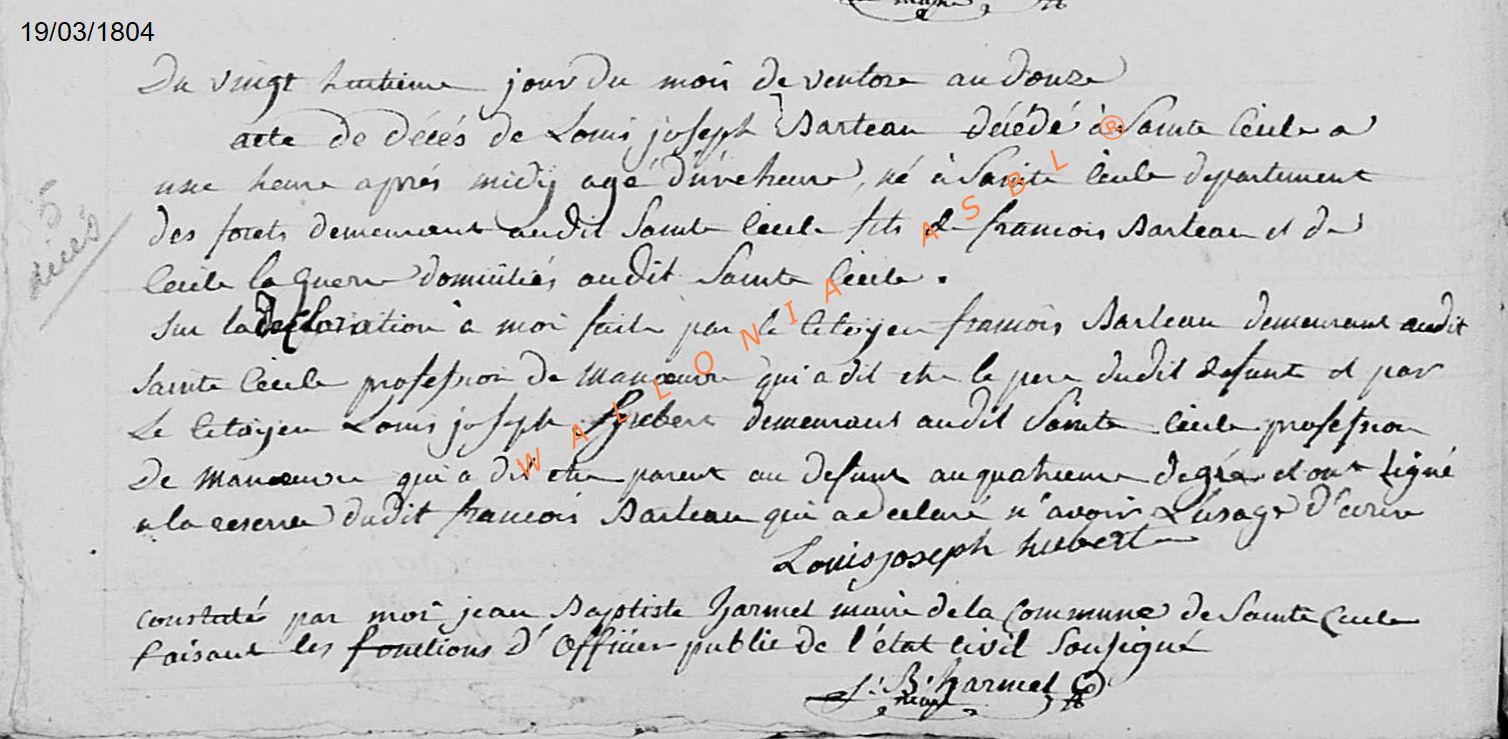 19/03/1804
maire
Du vingt huitieme jour du mois de ventose an douze
acte de décés de Louis joseph Barteau décédé à Sainte Cecile a
une heure aprés midy agé d'une heure, né à Sainte Cecile departement
des forets demeurant audit Sainte Cecile fils de francois Barteau et de
Cecile la Guerre domiciliés audit Sainte Cecile.
sur la declaration à moi faite par le Citoyen francois Barteau demeurant audit
Sainte Cecile profession de manœuvre qui a dit etre le pere dudit defunt et par
Le Citoyen Louis joseph hubert demeurant audit Sainte Cecile profession
De manœuvre qui a dit etre parent au defunt au quatrieme degré et ont signé
a la reserve dudit francois Barteau qui a declaré n'avoir L'usage d'ecrire
Louis joseph hubert
constaté par moi jean Baptiste harmel maire de la commune de Sainte Cecile
faisant les fonctions d'officier public de l'état civil soussigné
J. B. harmel
maire
5
décés
WALLONIA ASBL ®